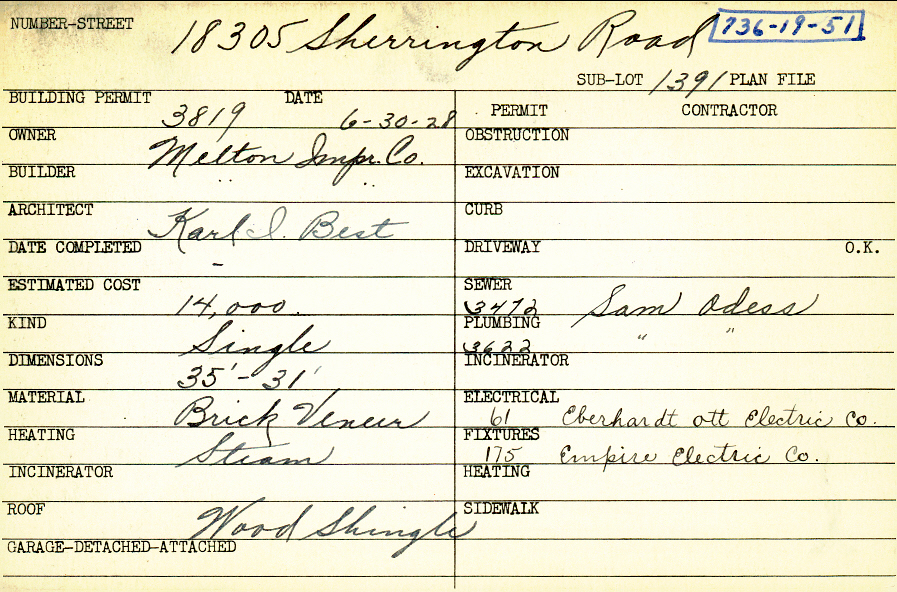 NUMBER-STREET 18305 Sherrington Road 736-19-51
SUB-LOT 1391 PLAN FILE
BUILDING PERMIT 3819 DATE 6-30-28
OWNER Melton Impr. Co.
BUILDER " "
ARCHITECT Karl I. Best
DATE COMPLETED -
ESTIMATED COST 14,000.
KIND Single
DIMENSIONS 35' - 31'
MATERIAL Brick Veneer
HEATING Steam
INCINERATOR
ROOF Wood Shingle
GARAGE-DETACHED-ATTACHED
PERMIT CONTRACTOR
OBSTRUCTION
EXCAVATION
CURB
DRIVEWAY O.K.
SEWER 3472 Sam Odess
PLUMBING 3622 " "
INCINERATOR
ELECTRICAL 61 Eberhardt Ott Electric Co.
FIXTURES 175 Empire Electric Co.
HEATING
SIDEWALK